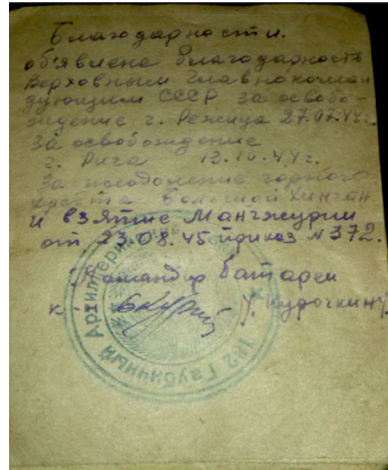 Благодарности.
объявлена благодарность
Верховным Главнокоман
дующим СССР за освобо-
ждение г. Режица 27.07.44г.
За освобождение
г. Рига 13.10.44г.
За преодоление горного
хребта Большой Хинган
и взятие Манчжурии
от 23.08.45 приказ N 372.
Командир батареи
к-
182 Гаубичный Артиллерийский